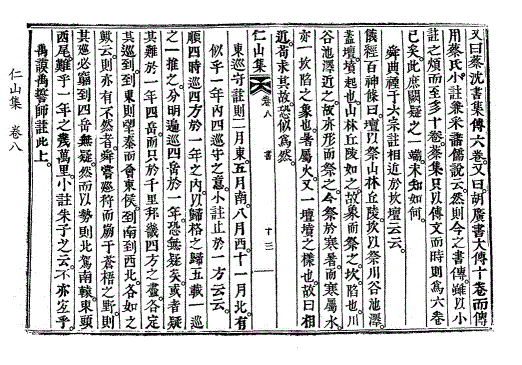 又曰蔡沈書集傳六卷又曰胡廣書大傳十卷而傳
用蔡氏小註兼采諸儒說云然則今之書傳雖以小
註之煩而至多十卷蔡集只以傳文而時則爲六卷
已矣此庶闕疑之一端未知如何
舜典禋于六宗註相近於坎壇云云
儀經百神條曰壇以祭山林丘陵坎以祭川谷池澤
蓋壇墳起也山林丘陵如之故象而祭之坎陷也川
谷池澤近之故亦形而祭之今祭於寒暑而寒屬水
亦一坎陷之象也暑屬火又一壇墳之樣也故曰相
近者求其故恐似爲然
仁山集 卷八 書 十三
東巡守註則二月東五月南八月西十一月北有
似乎一年內四巡守之意小註止於一方云云
順四時巡四方於一年之內以歸格之歸五載一巡
之一推之分明遍巡四岳於一年恐無疑矣或者疑
其難於一年四岳而只於千里邦畿四方之盡各定
其巡到到東則望秦而會東侯到南到西北各如之
歟云則亦有不然者舜嘗巡狩而崩于蒼梧之野則
其巡必窮到四岳無疑然而以勢則北駕南轅東頭
西尾難乎一年之幾萬里小註朱子之云不亦宜乎
禹謨禹誓師註此上
仁山集 卷八